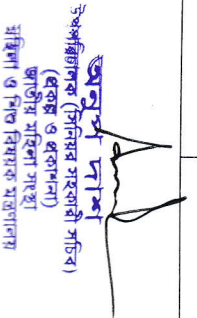 অনুপ্রভা দাস
উপপরিচালক (সিনিয়র সহকারী সচিব)
(প্রকল্প ও প্রকাশনা)
জাতীয় মহিলা সংস্থা
মহিলা ও শিশু বিষয়ক মন্ত্রণালয়